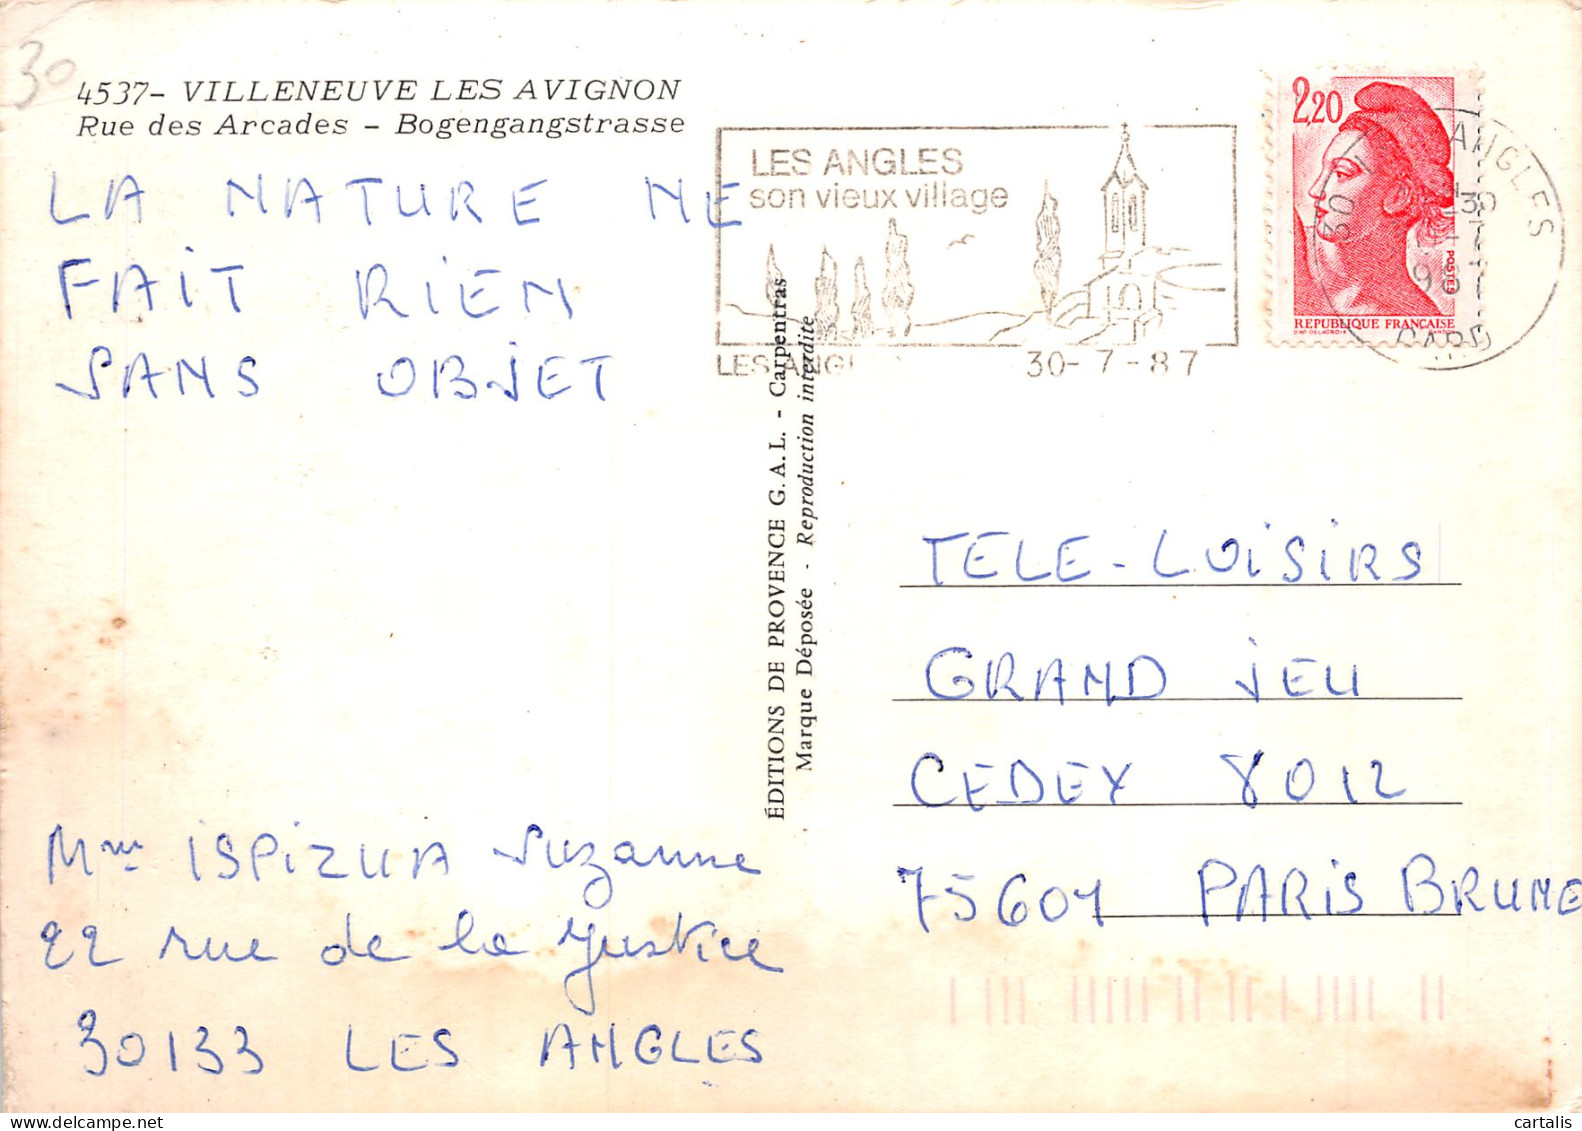 30
4537- VILLENEUVE LES AVIGNON
Rue des Arcades - Bogengangstrasse
LA NATURE NE
FAIT RIEN
SANS OBJET
Mme ISPIZUA Suzanne
22 rue de la Justice
30133 LES ANGLES
ÉDITIONS DE PROVENCE G.A.L. - Carpentras
Marque Déposée - Reproduction interdite
LES ANGLES
son vieux village
LES ANGL
30-7-87
2,20
POSTES
REPUBLIQUE FRANÇAISE
30 ANGLES
GARD
TELE-LOISIRS
GRAND JEU
CEDEX 8012
75601 PARIS BRUNE
cartalis